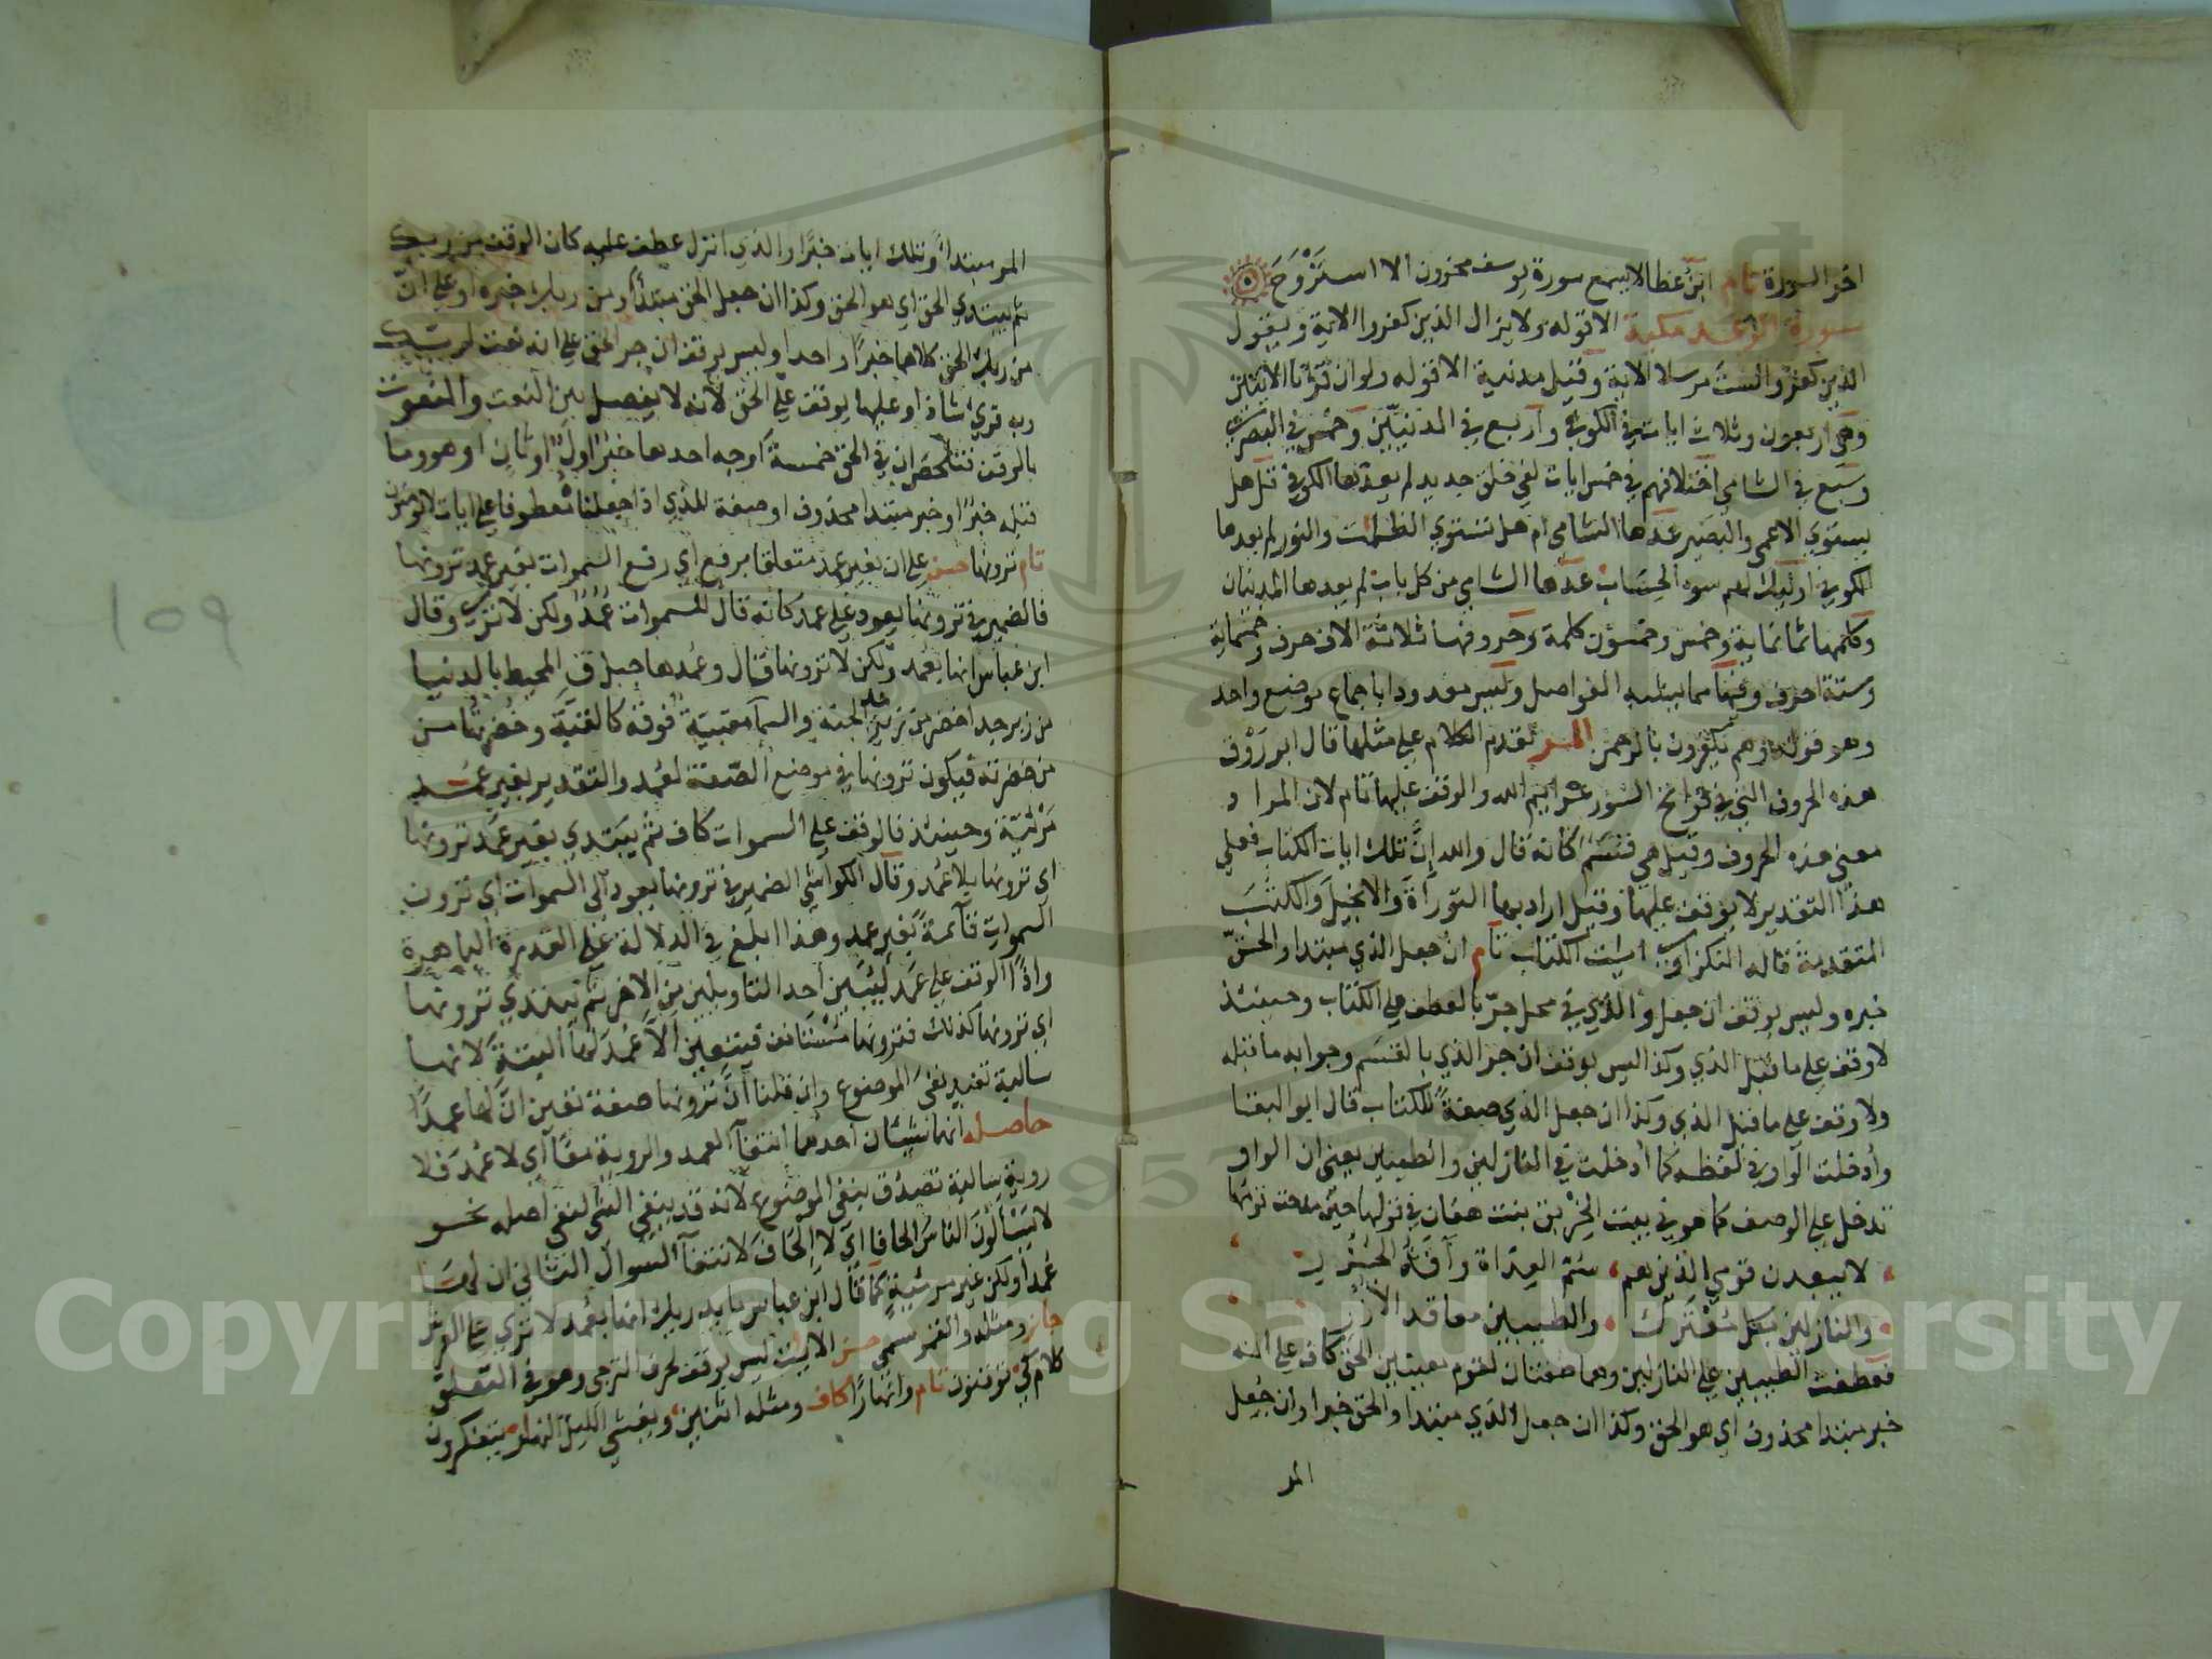 اخر السورة تام ابن عطا لا يسمع سورة يوسف محزون الا استروح
سورة الرعد مكية الا قوله ولا يزال الذين كفروا الاية ويقول
الذين كفروا لست مرسلا الاية وقيل مدنية الا قوله ولو ان قرآنا الآيتين
وهي اربعون وثلاث ايات في الكوفي واربع في المدنيين وخمس في البصري
وسبع في الشامي اختلافهم في خمس ايات لفي خلق جديد لم يعدها الكوفي قل هل
يستوي الاعمى والبصير عدها الشامي ام هل تستوي الظلمت والنور لم يعدها
الكوفي اوليك لهم سوء الحساب عدها الشامي من كل باب لم يعدها المدنيان
وكلمها ثمانماية وخمس وخمسون كلمة وحروفها ثلاثة الاف حرف وخمسماية
وستة احرف وفيها مما يشبه الفواصل وليس معدودا باجماع موضع واحد
وهو قوله وهم يكفرون بالرحمن المر تقدم الكلام على مثلها قال ابو روق
هذه الحروف التي في فواتح السور عزايم الله والوقف عليها تام لان المراد
معنى هذه الحروف وقيل هي قسم كانه قال والله إن تلك ايات الكتاب فعلى
هذا التقدير لا يوقف عليها وقيل اراد بها التوراة والانجيل والكتب
المتقدمة قاله النكزاوي ايت الكتاب تام ان جعل الذي مبتدا والحق
خبره وليس بوقف ان جعل والذي في محل جر بالعطف على الكتاب وحينئذ
لا وقف على ما قبل الذي وكذا ليس بوقف ان جر الذي بالقسم وجوابه ما قبله
ولا وقف على ما قبل الذي وكذا ان جعل الذي صفة للكتاب قال ابو البقا
وأدخلت الواو في لفظه كما أدخلت في النازلين والطيبين يعني ان الواو
تدخل على الوصف كما هو في بيت الخرنق بنت هفان في قولها حين مدحت قومها
لا يبعدن قومي الذين هم سم العداة وآفة الجزر
والنازلين بكل معترك والطيبين معاقد الأزر
فعطفت الطيبين على النازلين وهما صفتان لقوم معينين الحق كاف على انه
خبر مبتدا محذوف اي هو الحق وكذا ان جعل الذي مبتدا والحق خبرا وان جعل
المر
المر مبتدأ وتلك ايات خبرا والذي انزل عطف عليه كان الوقف من ربك
ثم يبتدي الحق اي هو الحق وكذا ان جعل الحق مبتدأ ومن ربك خبره او على ان
من ربك الحق كلاهما خبرا واحدا وليس بوقف ان جر الحق على انه نعت لربك
وبه قرئ شاذا وعليها يوقف على الحق لانه لا يفصل بين النعت والمنعوت
بالوقف فتلخص ان في الحق خمسة أوجه احدها خبر اول او ثان او هو وما
قبله خبرا او خبر مبتدا محذوف او صفة للذي اذا جعلناه معطوفا على ايات لا يومنون
تام ترونها حسن على ان بغير عمد متعلقا برفع اي رفع السموات بغير عمد ترونها
فالضمير في ترونها يعود على عمد كانه قال للسموات عمد ولكن لا ترى وقال
ابن عباس انها بعمد ولكن لا ترونها قال وعمدها جبل ق المحيط بالدنيا
من زبرجد اخضر من زبرجد الجنة والسمآ مقببة فوقه كالقبة وخضرتها من
من خضرته فيكون ترونها في موضع الصفة لعمد والتقدير بغير عمد
مرئية وحينئذ فالوقف على السموات كاف ثم يبتدي بغير عمد ترونها
اي ترونها بلا عمد وقال الكواشي الضمير في ترونها يعود الى السموات اي ترون
السموات قائمة بغير عمد وهذا ابلغ في الدلالة على القدرة الباهرة
واذا الوقف على عمد ليبين احد التاويلين من الاخر ثم تبتدي ترونها
اي ترونها كذلك فترونها مستانف فيتعين ألا عمد لها البتة لانها
سالبة تفيد نفي الموضوع وان قلنا ان ترونها صفة تعين ان لها عمدا
حاصله انهما شيئان احدهما انتفآ العمد والروية معا اي لا عمد فلا
روية سالبة تصدق بنفي الموضوع لانه قد ينفي الشي لنفي اصله نحو
لا يسألون الناس الحافا اي لا إلحاف لانتفآ السوال الثاني ان لها
عمدا ولكن غير مرئية كما قال ابن عباس ما يدريك انها بعمد لا ترى على العرش
جايز ومثله والقمر مسمى حسن الايت ليس بوقف لحرف الترجي وهو في التعلق
كلام كي توقنون تام وانهارا كاف ومثله اثنين ويغشي الليل النهار يتفكرون
١٥٩
Copyright © King Saud University
1957